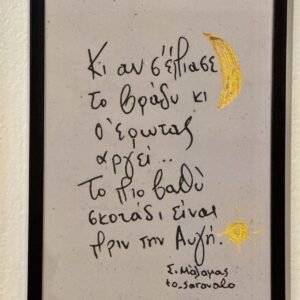 Κι αν σ' έπιασε
το βράδυ κι
ο έρωτας
αργεί..
Το πιο βαθύ
σκοτάδι είναι
πριν την Αυγή.
Σ. Μάλαμας
to_saravalo